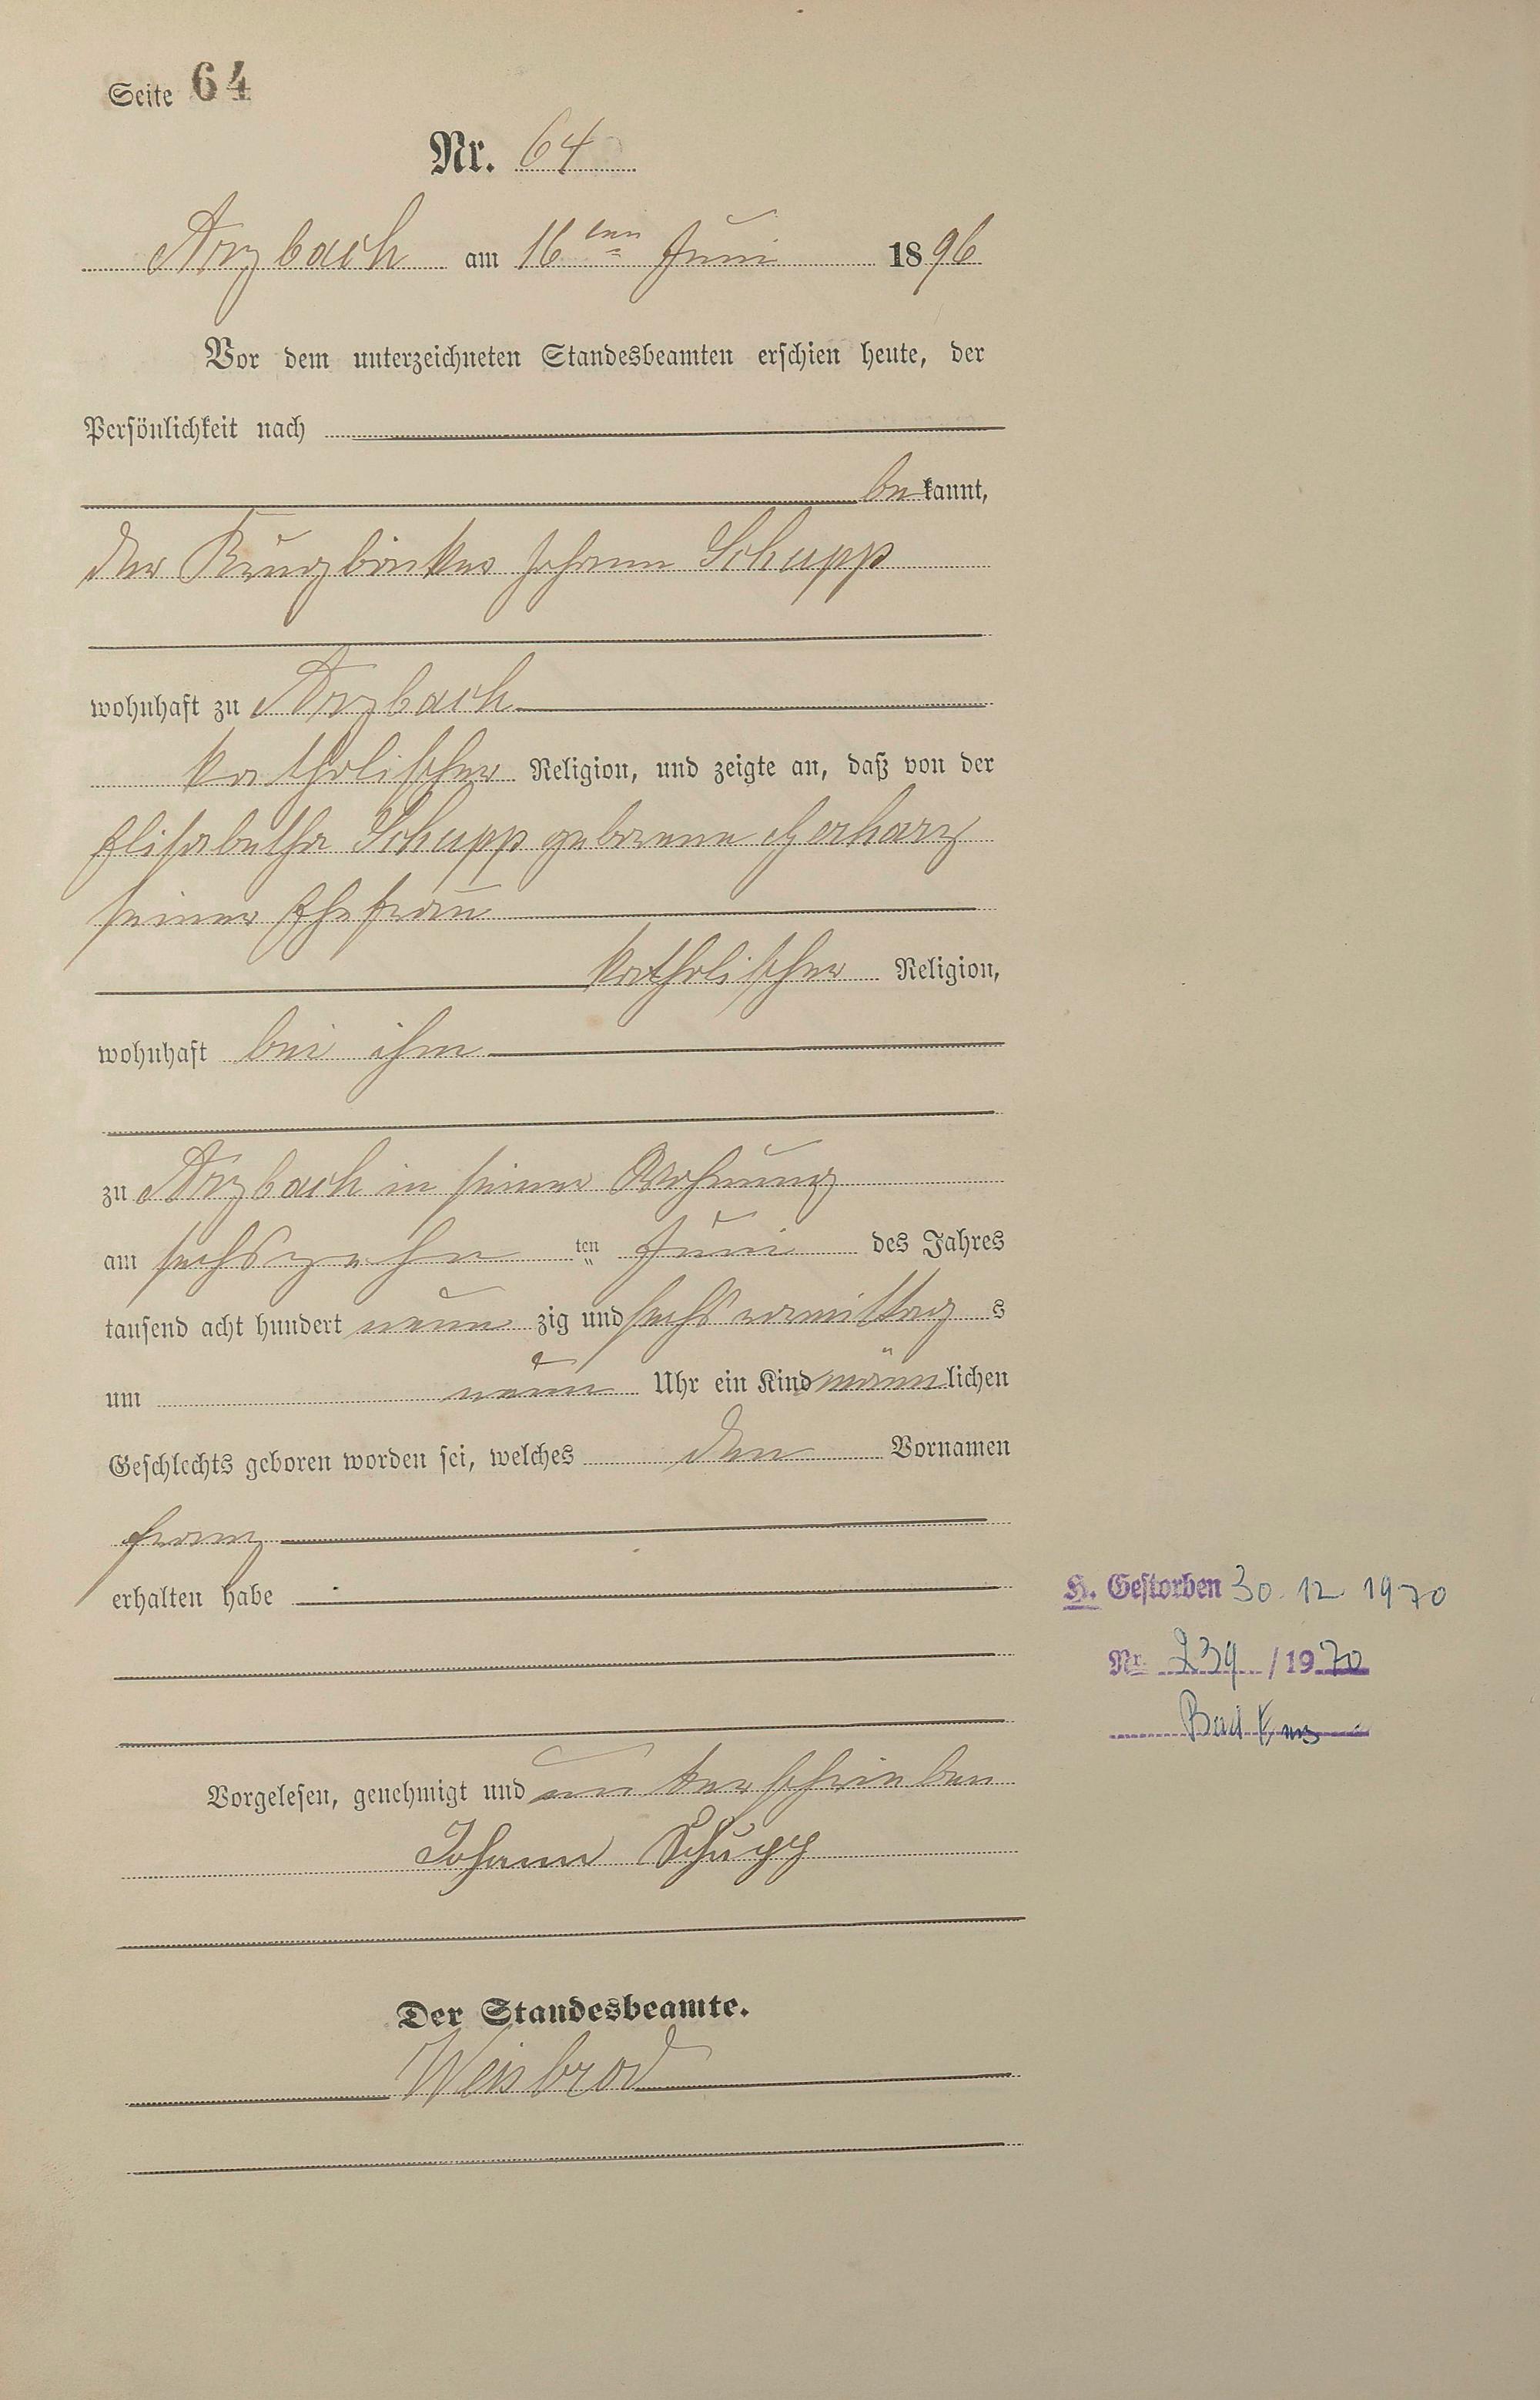 Seite 64
Nr. 64
Arzbach am 16ten Juni 1896
Vor dem unterzeichneten Standesbeamten erschien heute, der
Persönlichkeit nach
bekannt,
der Krugbäcker Johann Schupp
wohnhaft zu Arzbach
katholischer Religion, und zeigte an, daß von der
Elisabetha Schupp geborene Gerharz
seiner Ehefrau
katholischer Religion,
wohnhaft bei ihm
zu Arzbach in seiner Wohnung
am sechszehn ten Juni des Jahres
tausend acht hundert neun zig und sechs vormittag s
um neun Uhr ein Kind männlichen
Geschlechts geboren worden sei, welches den Vornamen
Franz
erhalten habe
H. Gestorben 30.12 1970
Nr. 239 / 1970
Bad Ems
Vorgelesen, genehmigt und unterschrieben
Johann Schupp
Der Standesbeamte.
Weisbrod